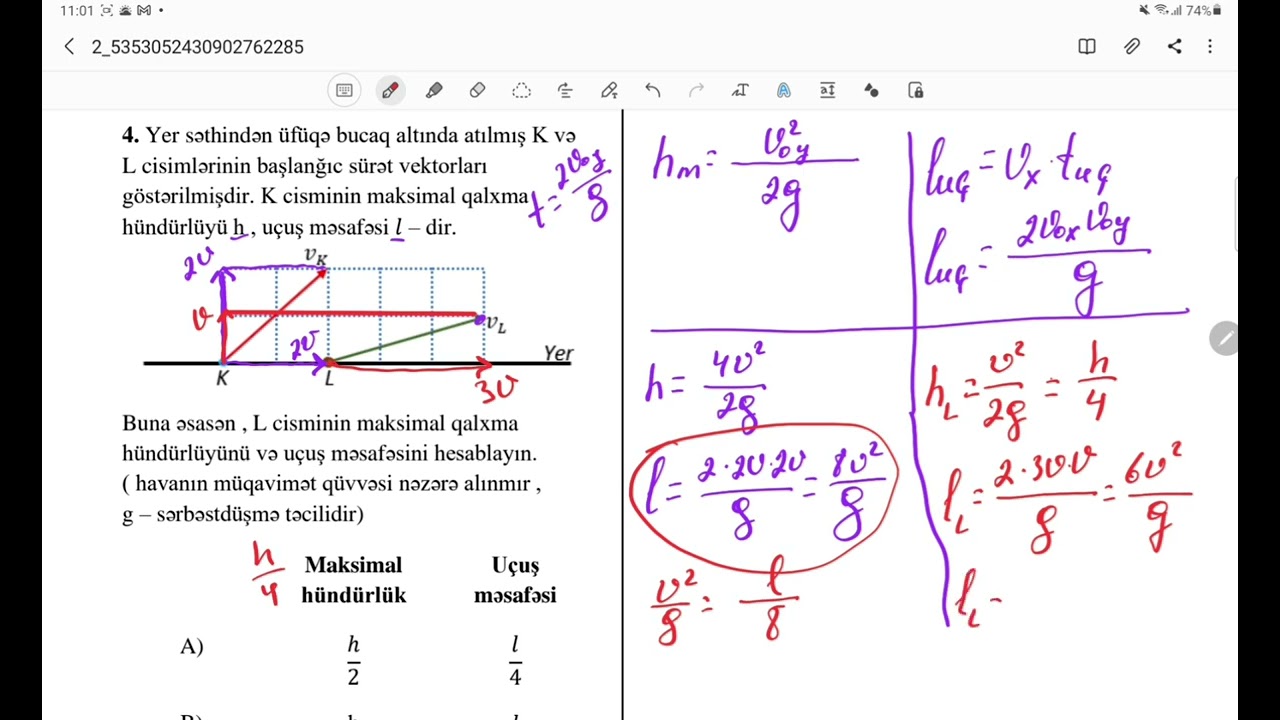 11:01 74%
2_5353052430902762285
4. Yer səthindən üfüqə bucaq altında atılmış K və
L cisimlərinin başlanğıc sürət vektorları
göstərilmişdir. K cisminin maksimal qalxma
hündürlüyü h , uçuş məsafəsi l – dir.
t = 2υ₀y/g
2υ υK
υ υL
2υ Yer
K L 3υ
Buna əsasən , L cisminin maksimal qalxma
hündürlüyünü və uçuş məsafəsini hesablayın.
( havanın müqavimət qüvvəsi nəzərə alınmır ,
g – sərbəstdüşmə təcilidir)
h/4 Maksimal Uçuş
hündürlük məsafəsi
A) h/2 l/4
hm = υ₀y²/2g
luç = υx · tuç
luç = 2υ₀xυ₀y/g
h = 4υ²/2g
l = 2·2υ·2υ/g = 8υ²/g
υ²/g = l/8
hL = υ²/2g = h/4
lL = 2·3υ·υ/g = 6υ²/g
lL -